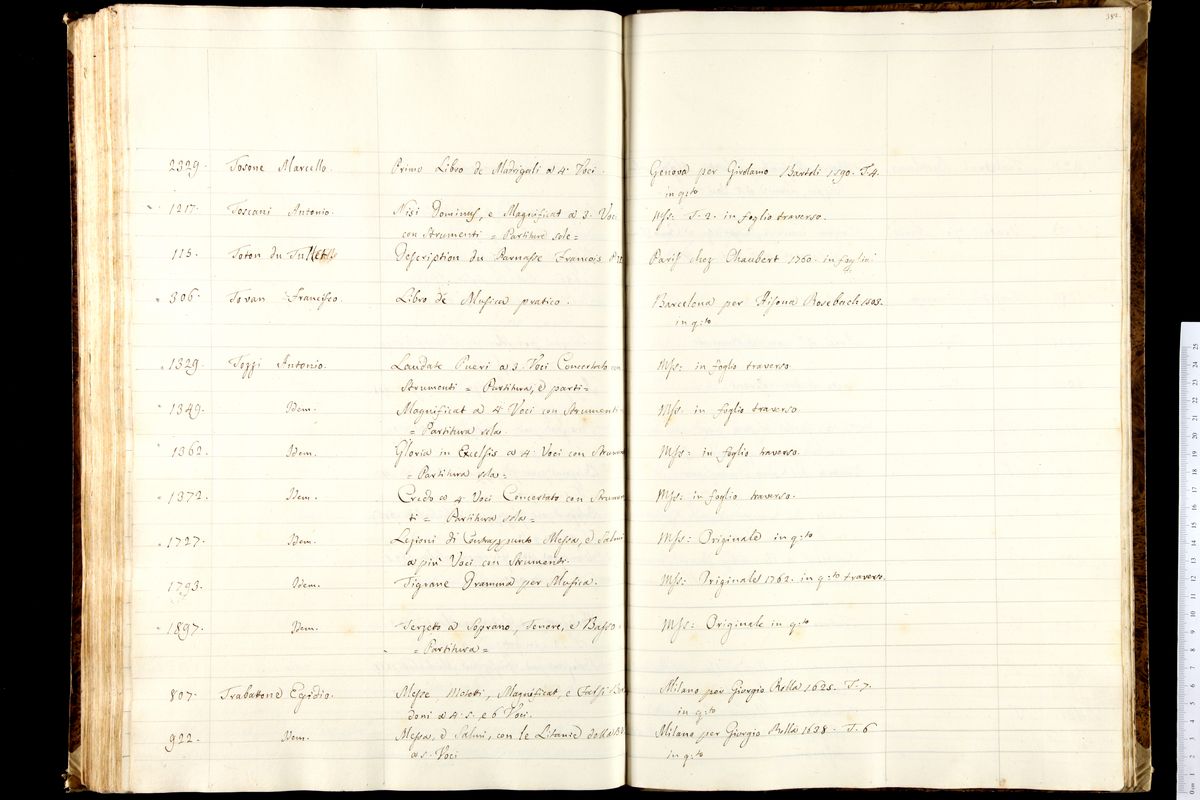 382.
2329. Tosone Marcello. Primo Libro de Madrigali a 4. Voci. Genova per Girolamo Bartoli 1590. T. 4.
in q:to
1217. Toscani Antonio. Nisi Dominus, e Magnificat a 3. Voc Mss: T. 2. in foglio traverso.
con Strumenti = Partiture sole =
115. Toton du Description du Parnasse François Paris chez Chaubert 1760. in foglio.
306. Tovar Francisco Libro de Musica pratico. Barcelona per Rosebach 1503.
in q:to
1329. Tozzi Antonio. Laudate Pueri a 3. Voci Concertato con Mss: in foglio traverso
Strumenti = Partitura, e parti =
1349. Idem. Magnificat a 4 Voci con Strumenti Mss: in foglio traverso
= Partitura sola.
1362. Idem. Gloria in Excelsis a 4. Voci con Strum Mss: in foglio traverso.
= Partitura sola =
1372. Idem. Credo a 4 Voci Concertato con Strumen Mss: in foglio traverso.
ti = Partitura sola =
1727. Idem. Lezioni di Contrappunto Messa, e Salmi Mss: Originale in q:to
a più Voci con Strumenti.
1793. Idem. Tigrane Dramma per Musica. Mss: Originale 1762. in q:to traverso.
1897. Idem. Terzeto a Soprano, Tenore, e Basso. Mss: Originale in q:to
= Partitura =
807. Trabatone Egidio. Messe Motetti, Magnificat, e Falsi Bor Milano per Giorgio Rolla 1625. T. 7.
doni a 4. 5. e 6 Voci. in q:to
922. Idem. Messa, e Salmi, con le Litanie della BV Milano per Giorgio Rolla 1638. T. 6
a 5. Voci in q:to